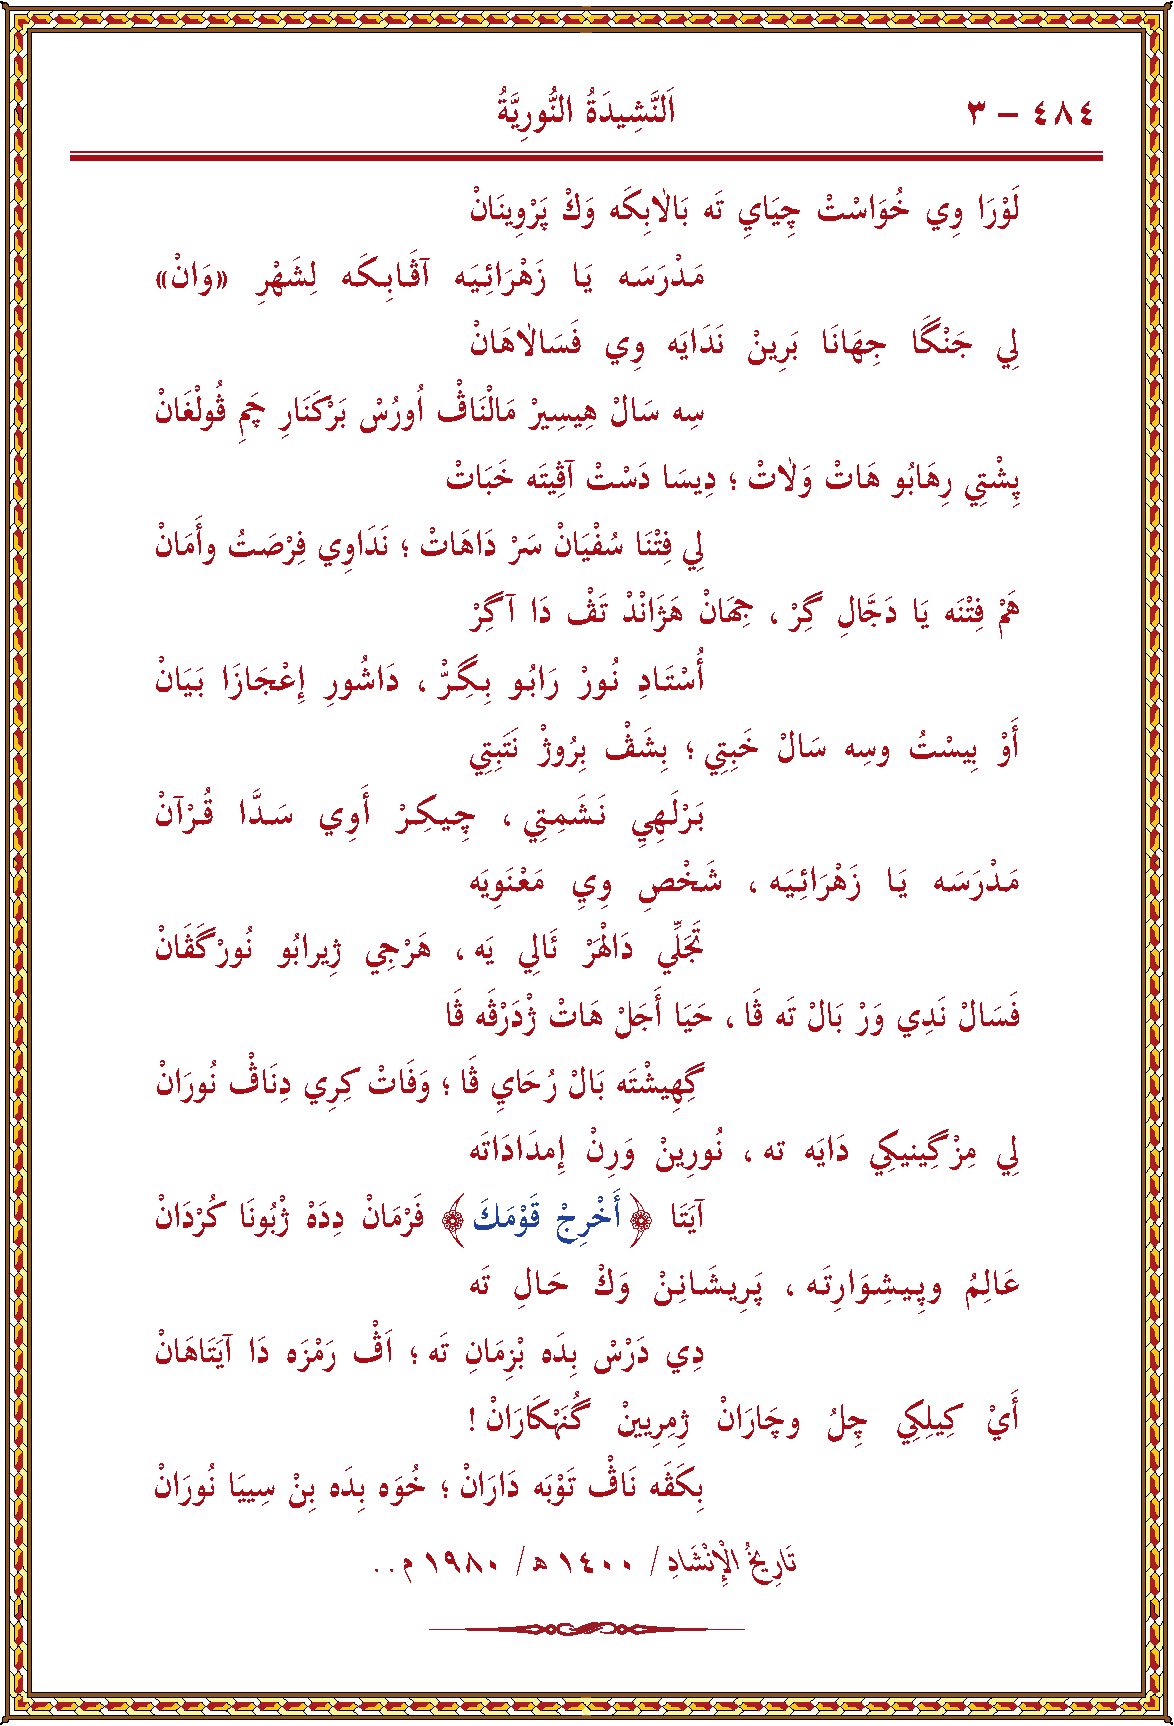 ٤٨٤ – ٣ اَلنَّشِيدَةُ النُّورِيَّةُ
لَوْرَا وِي خُوَاسْتْ چِيَايِ تَه بَالَابِكَه وَكْ پَرْوِينَانْ
مَدْرَسَه يَا زَهْرَائِيَه آڤَابِكَه لِشَهْرِ «وَانْ»
لِي جَنْگَا جِهَانَا بَرِينْ نَدَايَه وِي فَسَالَاهَانْ
سِه سَالْ هِيسِيرْ مَالْنَاڤْ اُورُسْ بَرْكَنَارِ چَمِ ڤُولْغَانْ
پِشْتِي رِهَابُو هَاتْ وَلَاتْ ؛ دِيسَا دَسْتْ آڤِيتَه خَبَاتْ
لِي فِتْنَا سُفْيَانْ سَرْ دَاهَاتْ ؛ نَدَاوِي فِرْصَتُ وأَمَانْ
هَمْ فِتْنَه يَا دَجَّالِ گِرْ ، جِهَانْ هَژَانْدْ تَڤْ دَا آگِرْ
أُسْتَادِ نُورْ رَابُو بِگِرّْ ، دَاشُورِ إِعْجَازَا بَيَانْ
أَوْ بِيسْتُ وسِه سَالْ خَبِتِي ؛ بِشَڤْ بِرُوژْ نَتَبِتِي
بَرْلَهِيِ نَشَمِتِي ، چِيكِرْ أَوِي سَدَّا قُرْآنْ
مَدْرَسَه يَا زَهْرَائِيَه ، شَخْصِ وِيِ مَعْنَوِيَه
تَجَلِّي دَالْهَرْ ئَالِي يَه ، هَرْجِي ژِيرَابُو نُورْگَڤَانْ
فَسَالْ نَدِي وَرْ بَالْ تَه ڤَا ، حَيَا أَجَلْ هَاتْ ژْدَرْڤَه ڤَا
گِهِيشْتَه بَالْ رُحَايِ ڤَا ؛ وَفَاتْ كِرِي دِنَاڤْ نُورَانْ
لِي مِزْگِينِيكِي دَايَه ته ، نُورِينْ وَرِنْ إِمدَادَاتَه
آيَتَا ﴿أَخْرِجْ قَوْمَكَ﴾ فَرْمَانْ دِدَهْ ژْبُونَا كُرْدَانْ
عَالِمُ وپِيشِوَارِتَه ، پَرِيشَانِنْ وَكْ حَالِ تَه
دِي دَرْسْ بِدَه بْزِمَانِ تَه ؛ اَڤْ رَمْزَه دَا آيَتَاهَانْ
أَيْ كِيلِكِي چِلُ وچَارَانْ ژِمِرِيينْ گُنَهْكَارَانْ !
بِكَڤَه نَاڤْ تَوْبَه دَارَانْ ؛ خُوَه بِدَه بِنْ سِييَا نُورَانْ
تَارِيخُ الْإِنْشَادِ / ١٤٠٠ هـ / ١٩٨٠ م . .